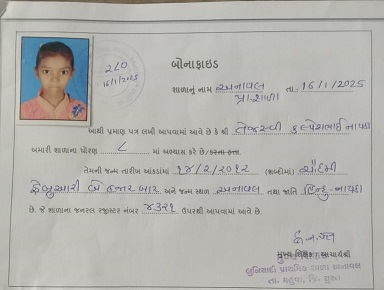 ૨૮૦
૧૬/૧/૨૦૨૫
બોનાફાઇડ
શાળાનું નામ અનાવલ પ્રા.શાળા તા. 16/1/2025
આથી પ્રમાણ પત્ર લખી આપવામાં આવે છે કે શ્રી તેજસ્વી કલ્પેશભાઈ નાયકી
અમારી શાળાના ધોરણ ૮ માં અભ્યાસ કરે છે/કરતા હતા.
તેમની જન્મ તારીખ આંકડામાં ૧૪/૨/૨૦૧૨ (શબ્દોમાં) ચૌદમી
ફેબ્રુઆરી બે હજાર બાર અને જન્મ સ્થળ અનાવલ તથા જાતિ હિન્દુ-નાયકી
છે. જે શાળાના જનરલ રજીસ્ટર નંબર ૪૩૨૧ ઉપરથી આપવામાં આવે છે.
મુખ્ય શિક્ષક / આચાર્યશ્રી
બુનિયાદી પ્રાથમિક શાળા અનાવલ
તા. મહુવા, જિ. સુરત